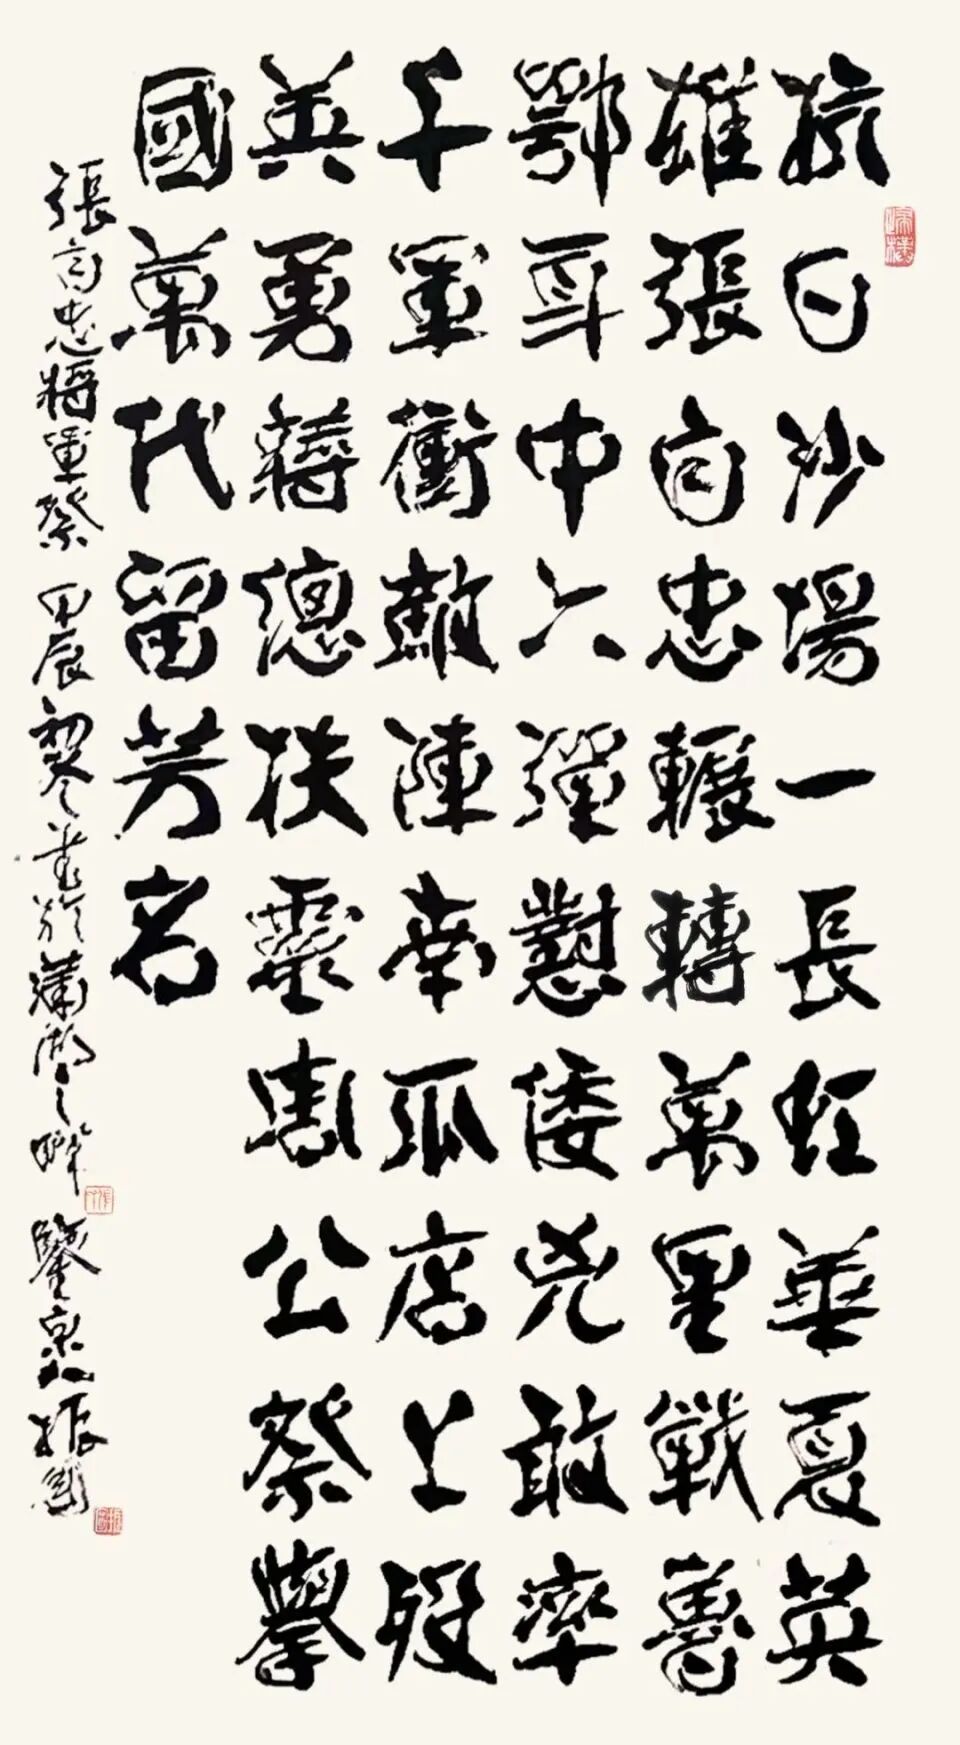 抗日沙場一長虹華夏英
雄張自忠輾轉萬里戰魯
鄂身中六彈懟倭兇敢率
千軍衝敵陣南瓜店上歿
英勇蔣總扶靈周公祭舉
國萬代留芳名
張自忠將軍祭 甲辰初冬書於瀟湘之畔 鑒泉